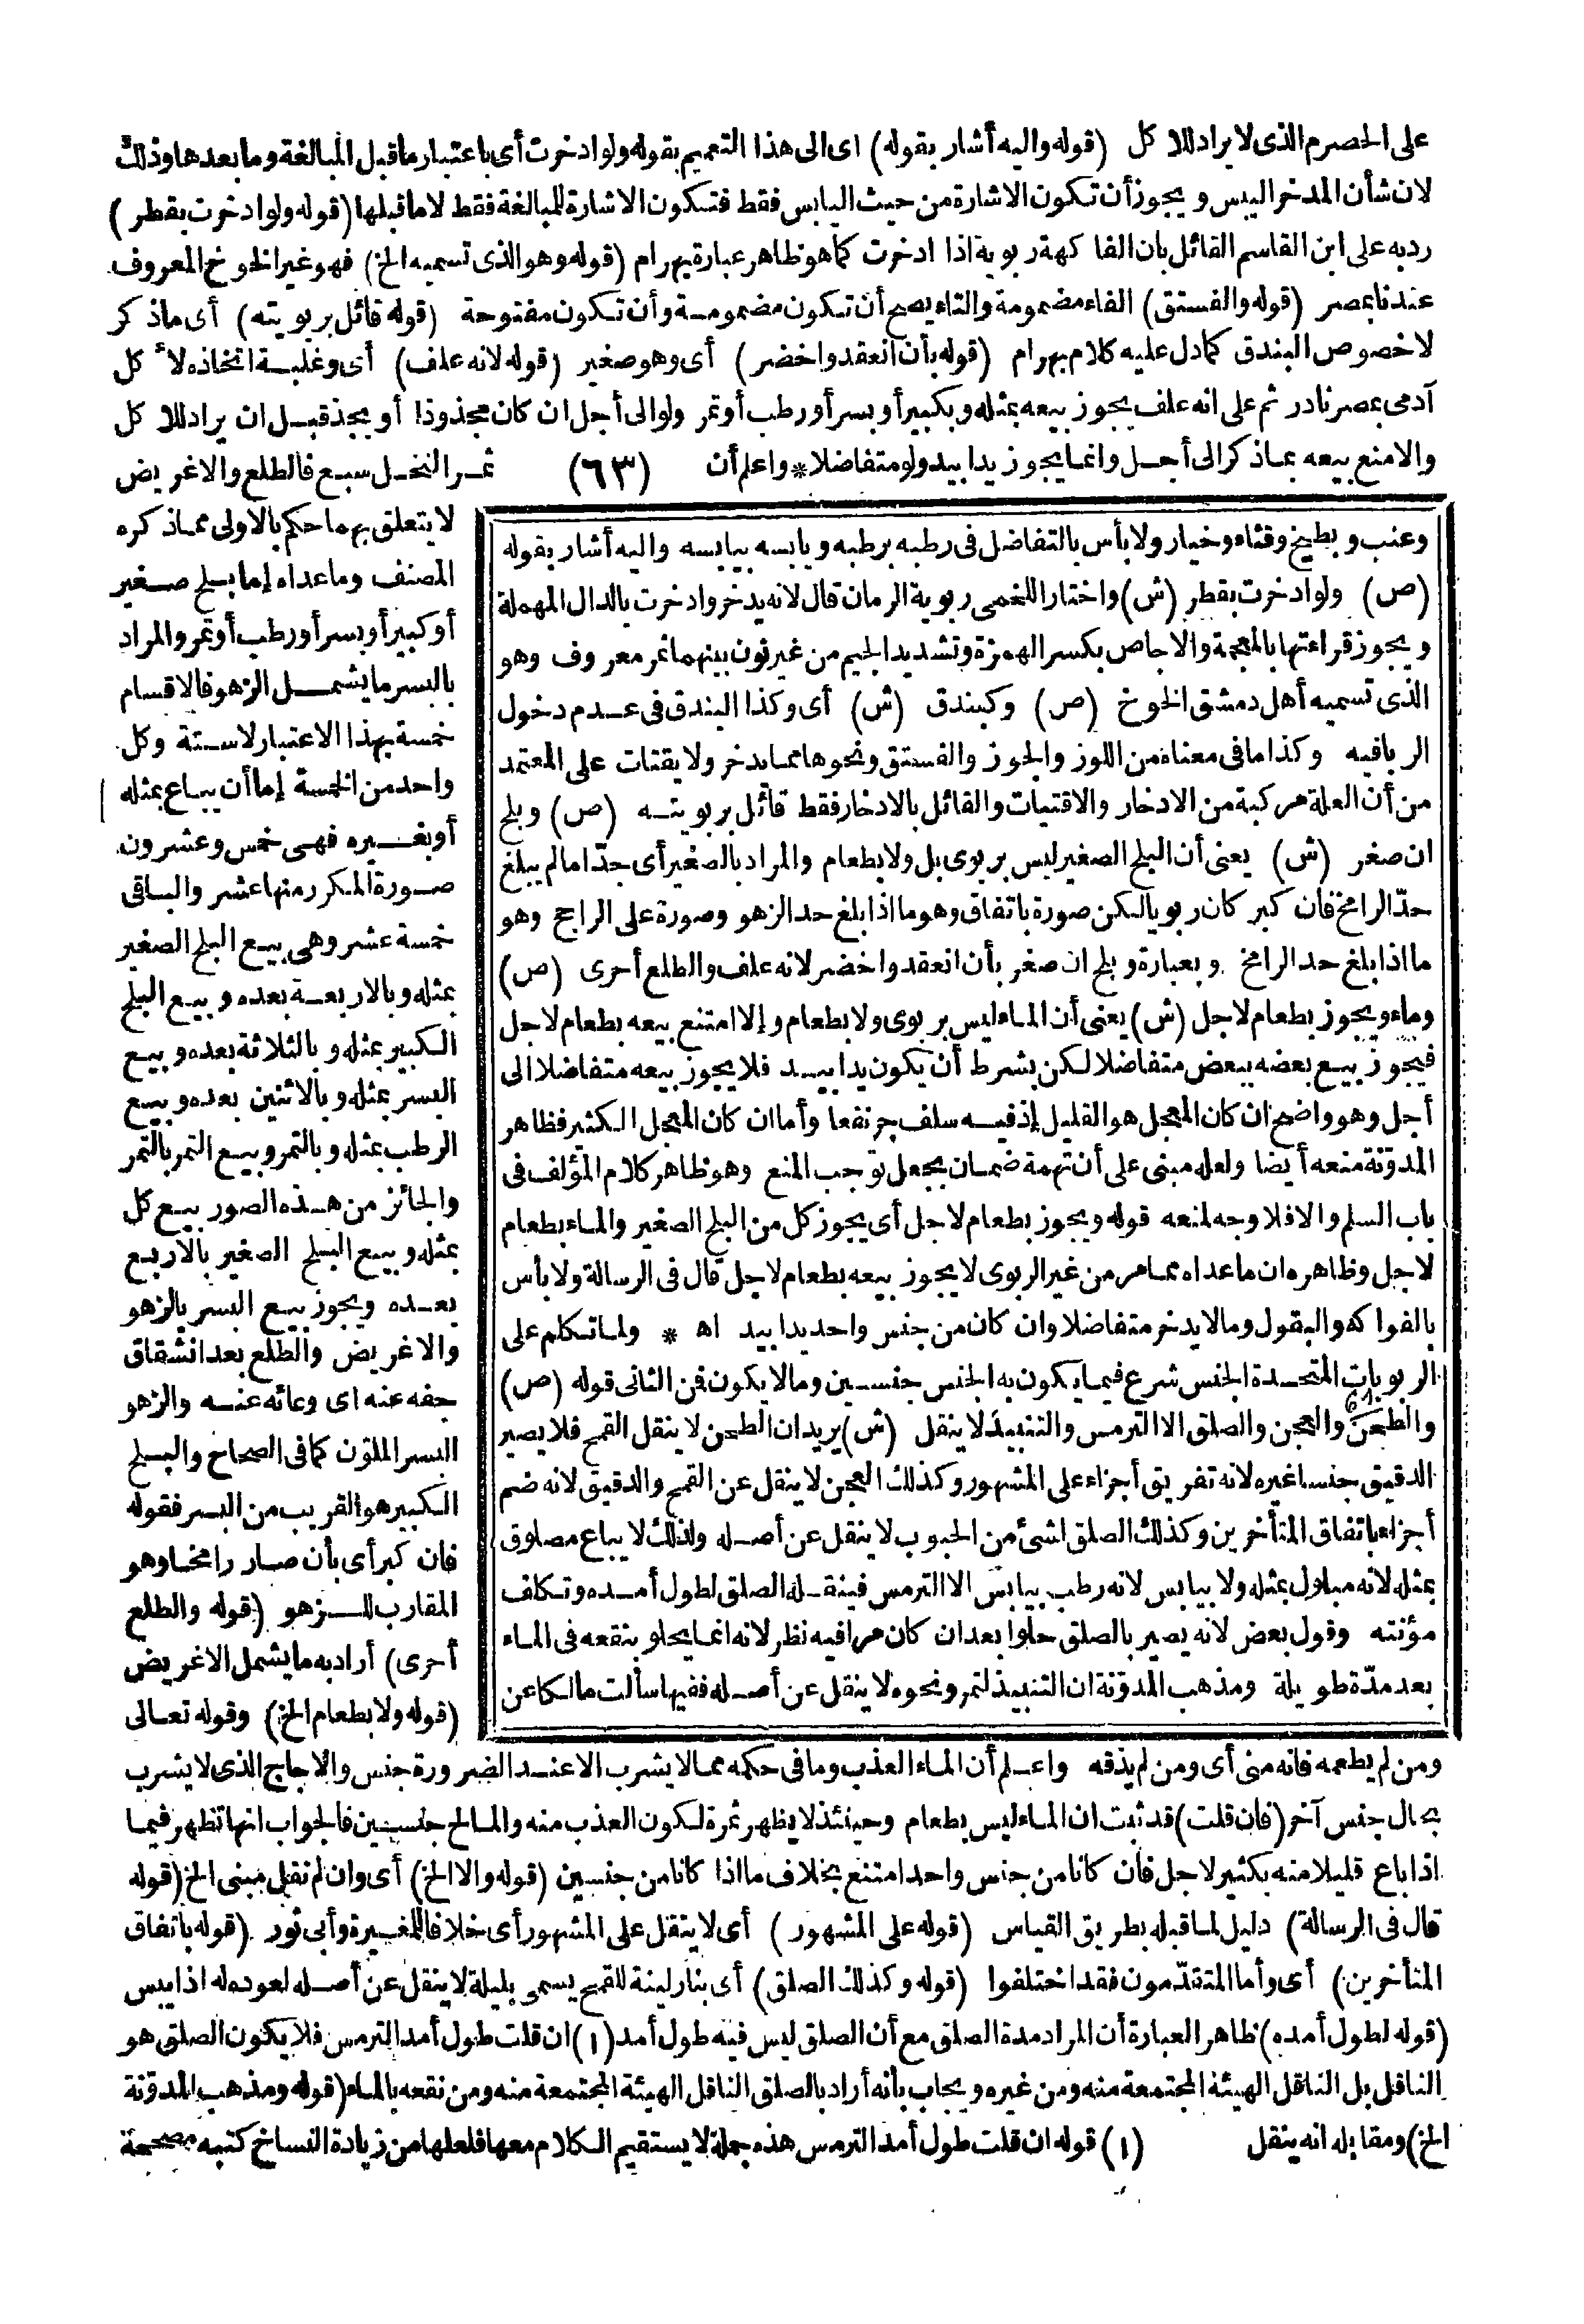 على الحصرم الذى لا يراد للا كل (قوله واليه أشار بقوله) اى الى هذا التعميم بقوله ولو ادخرت أى باعتبار ما قبل المبالغة وما بعدها وذلك
لان شأن المدخر اليبس و يجوز أن تكون الاشارة من حيث اليابس فقط فتكون الاشارة للمبالغة فقط لا ما قبلها (قوله ولو ادخرت بقطر)
رد به على ابن القاسم القائل بان الفا كهة ربوية اذا ادخرت كما هو ظاهر عبارة بهرام (قوله وهو الذى تسميه الخ) فهو غير الخوخ المعروف
عندنا بمصر (قوله والفستق) الفاء مضمومة والتاء يصح أن تكون مضمومة وأن تكون مفتوحة (قوله قائل بربويته) أى ما ذكر
لا خصوص البندق كما دل عليه كلام بهرام (قوله بأن انعقد واخضر) أى وهو صغير (قوله لانه علف) أى وغلبة اتخاذه لا كل
آدمى بمصر نادر ثم على انه علف يجوز بيعه بمثله و بكبير أو بسر أو رطب أو تمر ولو الى أجل ان كان مجذوذا أو يجذ قبل ان يراد للا كل
والا منع بيعه بما ذكر الى أجل وانما يجوز يدا بيد ولو متفاضلا * واعلم أن (٦٣) ثمر النخل سبع فالطلع والاغريض
لا يتعلق بهما حكم بالاولى مما ذكره
المصنف وما عداه إما بلح صغير
أو كبير أو بسر أو رطب أو تمر والمراد
بالبسر ما يشمل الزهو فالاقسام
خمسة بهذا الاعتبار لا ستة وكل
واحد من الخمسة إما أن يباع بمثله
أو بغيره فهى خمس وعشرون
صورة المكرر منها عشر والباقى
خمسة عشر وهى بيع البلح الصغير
بمثله وبالاربعة بعده و بيع البلح
الكبير بمثله وبالثلاثة بعده و بيع
البسر بمثله وبالاثنين بعده و بيع
الرطب بمثله وبالتمر و بيع التمر بالتمر
والجائز من هذه الصور بيع كل
بمثله و بيع البلح الصغير بالاربع
بعده ويجوز بيع البسر بالزهو
والاغريض والطلع بعد انشقاق
جفه عنه اى وعائه عنه والزهو
البسر الملون كما فى الصحاح والبلح
الكبير هو القريب من البسر فقوله
فان كبر أى بأن صار رامخا وهو
المقارب للزهو (قوله والطلع
أحرى) أراد به ما يشمل الاغريض
(قوله ولا بطعام الخ) وقوله تعالى
وعنب و بطيخ وقثاء وخيار ولا بأس بالتفاضل فى رطبه برطبه ويابسه بيابسه واليه أشار بقوله
(ص) ولو ادخرت بقطر (ش) واختار اللخمى ربوية الرمان قال لانه يدخر وادخرت بالدال المهملة
ويجوز قراءتها بالمعجمة والاجاص بكسر الهمزة وتشديد الجيم من غير نون بينهما ثمر معروف وهو
الذى تسميه أهل دمشق الخوخ (ص) وكبندق (ش) أى وكذا البندق فى عدم دخول
الربا فيه وكذا ما فى معناه من اللوز والجوز والفستق ونحوها مما يدخر ولا يقتات على المعتمد
من أن العلة مركبة من الادخار والاقتيات والقائل بالادخار فقط قائل بربويته (ص) وبلح
ان صغر (ش) يعنى أن البلح الصغير ليس بربوى بل ولا بطعام والمراد بالصغير أى جدّا ما لم يبلغ
حدّ الرامخ فان كبر كان ربويا لكن صورة باتفاق وهو ما اذا بلغ حد الزهو وصورة على الراجح وهو
ما اذا بلغ حد الرامخ وبعبارة وبلح ان صغر بأن انعقد واخضر لانه علف والطلع أحرى (ص)
وماء ويجوز بطعام لاجل (ش) يعنى أن الماء ليس بربوى ولا بطعام وإلا امتنع بيعه بطعام لاجل
فيجوز بيع بعضه ببعض متفاضلا لكن بشرط أن يكون يدا بيد فلا يجوز بيعه متفاضلا الى
أجل وهو واضح ان كان المعجل هو القليل إذ فيه سلف جر نفعا وأما ان كان المعجل الكثير فظاهر
المدوّنة منعه أيضا ولعله مبنى على أن تهمة ضمان بجعل توجب المنع وهو ظاهر كلام المؤلف فى
باب السلم والا فلا وجه لمنعه قوله ويجوز بطعام لاجل أى يجوز كل من البلح الصغير والماء بطعام
لاجل وظاهره ان ما عداه مما مر من غير الربوى لا يجوز بيعه بطعام لاجل قال فى الرسالة ولا بأس
بالفوا كه والبقول وما لا يدخر متفاضلا وان كان من جنس واحد يدا بيد اه * ولما تكلم على
الربويات المتحدة الجنس شرع فيما يكون به الجنس جنسين وما لا يكون فمن الثانى قوله (ص)
والطحن والعجن والصلق الا الترمس والتنبيذ لا ينقل (ش) يريد ان الطحن لا ينقل القمح فلا يصير
الدقيق جنسا غيره لانه تفريق أجزاء على المشهور وكذلك العجن لا ينقل عن القمح والدقيق لانه ضم
أجزاء باتفاق المتأخرين وكذلك الصلق لشئ من الحبوب لا ينقل عن أصله ولذلك لا يباع مصلوق
بمثله لانه مبلول بمثله ولا بيابس لانه رطب بيابس الا الترمس فينقله الصلق لطول أمده وتكلف
مؤنته وقول بعض لانه يصير بالصلق حلوا بعد ان كان مرا فيه نظر لانه انما يحلو بنقعه فى الماء
بعد مدّة طويلة ومذهب المدوّنة ان التنبيذ لتمر ونحوه لا ينقل عن أصله ففيها سألت مالكا عن
ومن لم يطعمه فانه منى أى ومن لم يذقه واعلم أن الماء العذب وما فى حكمه مما لا يشرب الا عند الضرورة جنس والاجاج الذى لا يشرب
بحال جنس آخر (فان قلت) قد ثبت ان الماء ليس بطعام وحينئذ لا يظهر ثمرة لكون العذب منه والمالح جنسين فالجواب انها تظهر فيما
اذا باع قليلا منه بكثير لاجل فان كانا من جنس واحد امتنع بخلاف ما اذا كانا من جنسين (قوله والا الخ) أى وان لم نقل مبنى الخ (قوله
قال فى الرسالة) دليل لما قبله بطريق القياس (قوله على المشهور) أى لا ينقل على المشهور أى خلافا للمغيرة وأبى ثور (قوله باتفاق
المتأخرين) أى وأما المتقدّمون فقد اختلفوا (قوله وكذلك الصلق) أى بنار لينة للقمح يسمى بليلة لا ينقل عن أصله لعوده له اذا يبس
(قوله لطول أمده) ظاهر العبارة أن المراد مدة الصلق مع أن الصلق ليس فيه طول أمد (١) ان قلت طول أمد الترمس فلا يكون الصلق هو
الناقل بل الناقل الهيئة المجتمعة منه ومن غيره ويجاب بأنه أراد بالصلق الناقل الهيئة المجتمعة منه ومن نقعه بالماء (قوله ومذهب المدوّنة
الخ) ومقابله انه ينقل (١) قوله ان قلت طول أمد الترمس هذه جملة لا يستقيم الكلام معها فلعلها من زيادة النساخ كتبه مصححه